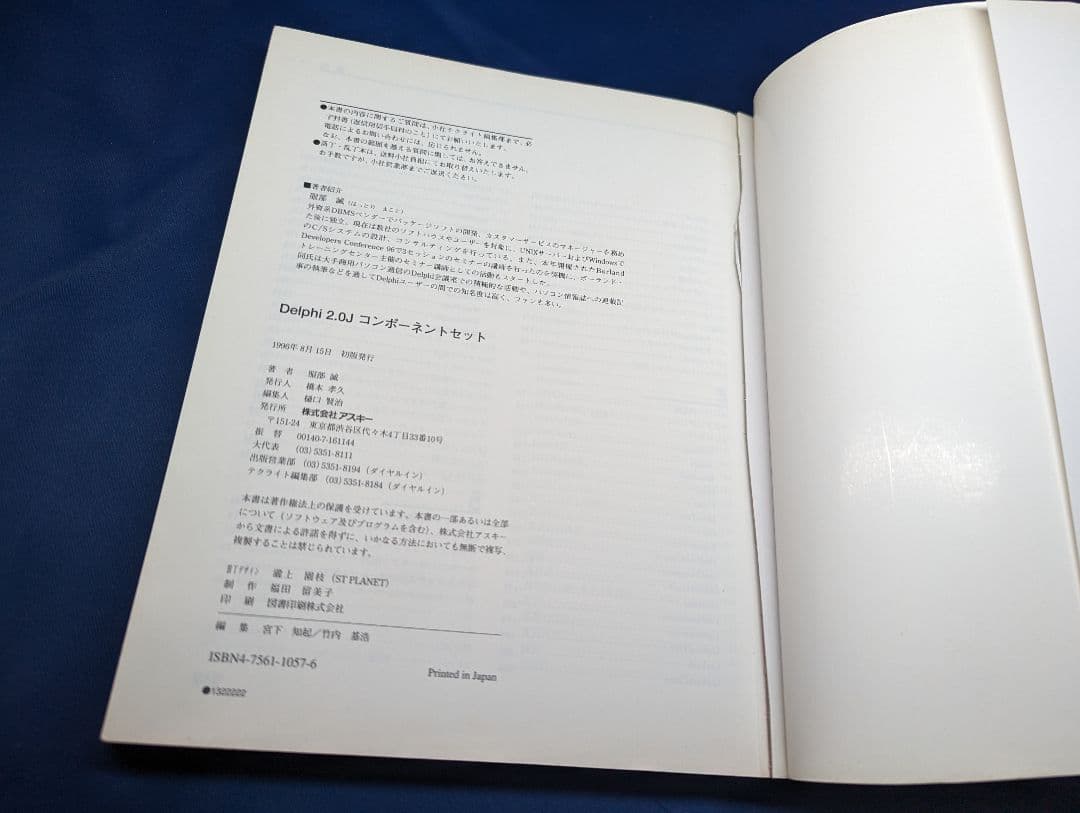 ●本書の内容に関するご質問は、小社テクライト編集部まで、必
ず封書(返信用切手同封のこと)にてお願いいたします。
電話によるお問い合わせには、応じられません。
なお、本書の範囲を越える質問に関しては、お答えできません。
●落丁・乱丁本は、送料小社負担にてお取り替えいたします。
お手数ですが、小社営業部までご返送ください。
■著者紹介
服部 誠(はっとり まこと)
外資系DBMSベンダーでパッケージソフトの開発、カスタマーサービスのマネージャーを務め
た後に独立。現在は数社のソフトハウスやユーザーを対象に、UNIXサーバーおよびWindowsで
のC/Sシステムの設計、コンサルティングを行っている。また、本年開催されたBorland
Developers Conference 96で3セッションのセミナーの講師を行ったのを契機に、ボーランド・
トレーニングセンター主催のセミナー講師としての活動もスタートした。
同氏は大手商用パソコン通信のDelphi会議室での積極的な活動や、パソコン情報誌への連載記
事の執筆などを通してDelphiユーザーの間での知名度は高く、ファンも多い。
Delphi 2.0J コンポーネントセット
1996年8月15日 初版発行
著 者 服部 誠
発行人 橋本 孝久
編集人 樋口 賢治
発行所 株式会社アスキー
〒151-24 東京都渋谷区代々木4丁目33番10号
振 替 00140-7-161144
大代表 (03)5351-8111
出版営業部 (03)5351-8194(ダイヤルイン)
テクライト編集部 (03)5351-8184(ダイヤルイン)
本書は著作権法上の保護を受けています。本書の一部あるいは全部
について(ソフトウェア及びプログラムを含む)、株式会社アスキー
から文書による許諾を得ずに、いかなる方法においても無断で複写、
複製することは禁じられています。
デザイン 瀧上 園枝(ST PLANET)
制 作 福田 留美子
印 刷 図書印刷株式会社
編 集 宮下 知起/竹内 基浩
ISBN4-7561-1057-6
Printed in Japan
●1322222